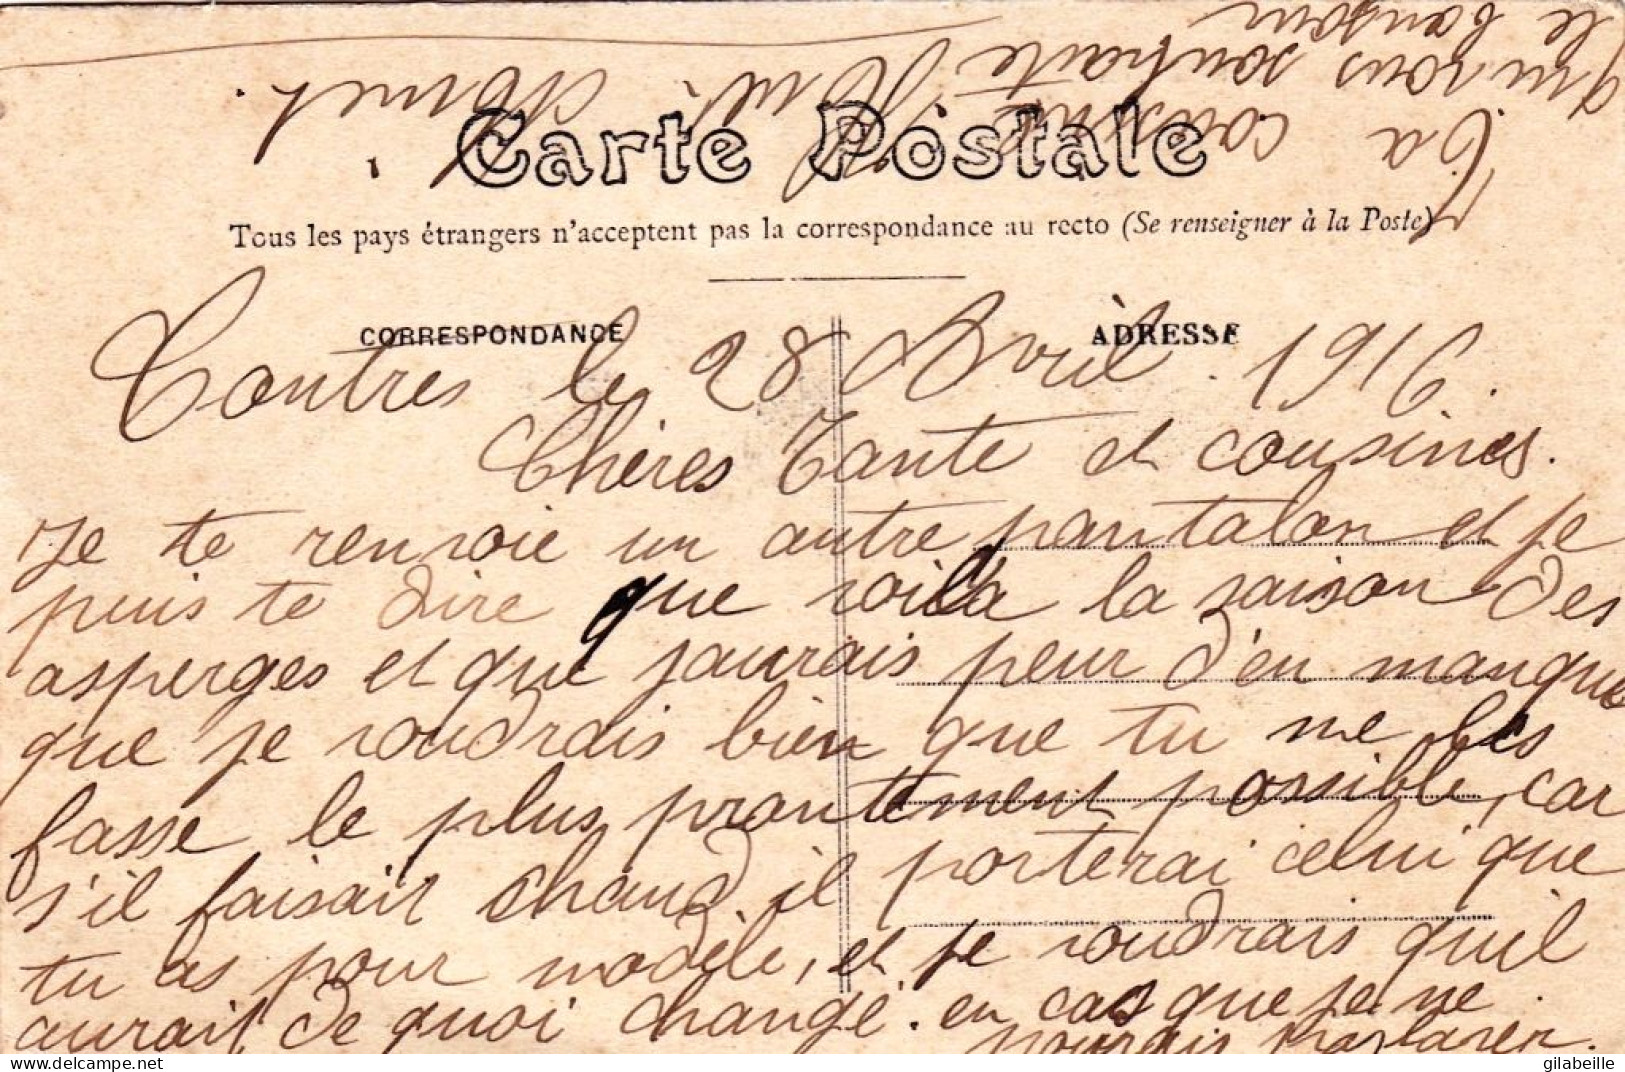 Carte Postale
Tous les pays étrangers n'acceptent pas la correspondance au recto (Se renseigner à la Poste)
CORRESPONDANCE
ADRESSE
Contres le 28 Avril 1916.
Chères Tante et cousines.
Je te renvoie un autre pantalon et je
puis te dire que voila la saison des
asperges et que jaurais peur d'en manque
que je voudrais bien que tu me les
fasse le plus prontement possible, car
s'il faisait chaud il porterai celui que
tu as pour modèle, et je voudrais quil
aurait de quoi changé. en cas que je ne
pourrais
Ta cousine
qui vous souhaite
le bonjour
gilabeille